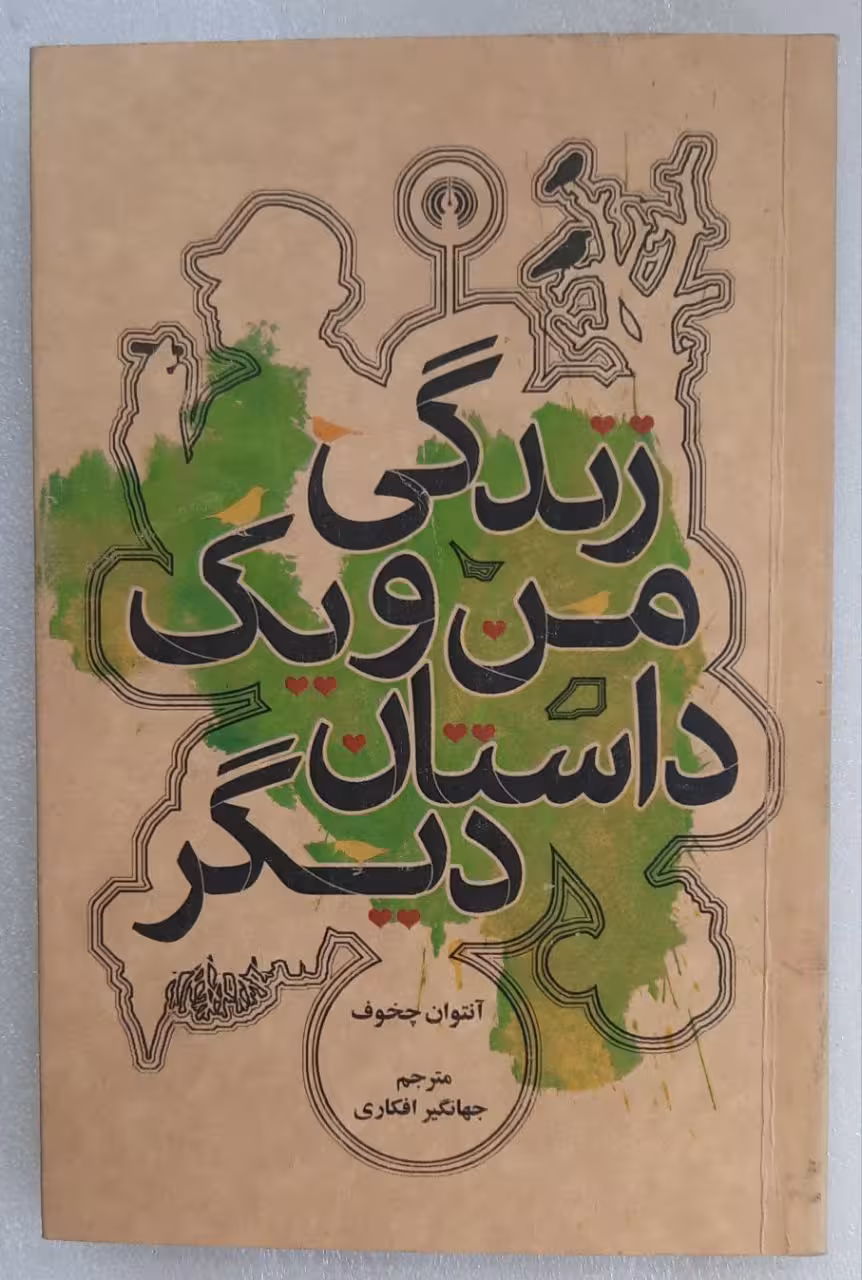 زندگی
من و یک
داستان
دیگر
آنتوان چخوف
مترجم
جهانگیر افکاری